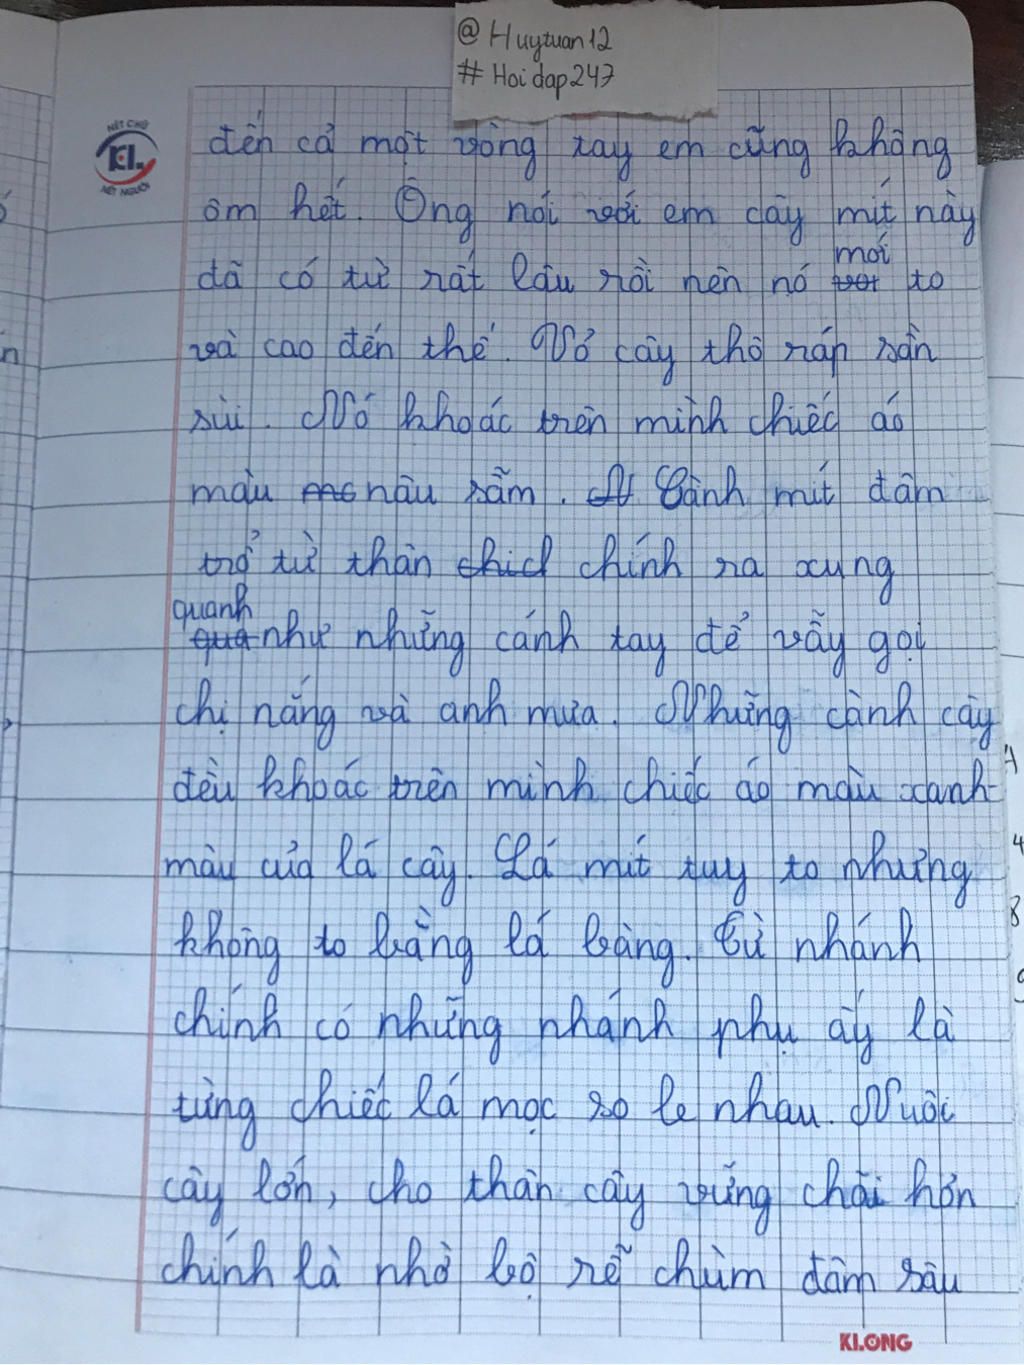 @Huytuan12
#Hoidap247
NÉT CHỮ
KL
NẾT NGƯỜI
đến cả một vòng tay em cũng không
ôm hết. Ông nói với em cây mít này
mới
đã có từ rất lâu rồi nên nó vơi to
và cao đến thế. Vỏ cây thô ráp sần
sùi. Nó khoác trên mình chiếc áo
màu nâu sẫm. Cành mít đâm
trổ từ thân chich chính ra xung
quanh
qua như những cánh tay để vẫy gọi
chị nắng và anh mưa. Những cành cây
đều khoác trên mình chiếc áo màu xanh
màu của lá cây. Lá mít tuy to nhưng
không to bằng lá bàng. Từ nhánh
chính có những nhánh phụ ấy là
từng chiếc lá mọc so le nhau. Nuôi
cây lớn, cho thân cây vững chãi hơn
chính là nhờ bộ rễ chùm đâm sâu
KLONG